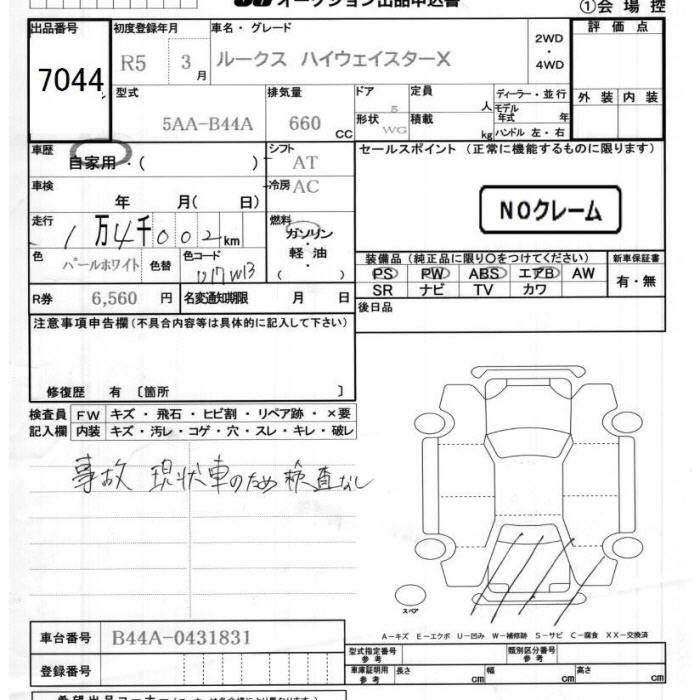 オークション出品申込書
①会 場 控
出品番号
7044
初度登録年月
R5 3月
車名・グレード
ルークス ハイウェイスターX
2WD
・
4WD
評 価 点
外 装 内 装
型式
5AA-B44A
排気量
660 CC
ドア
5
形状
WG
定員
人
積載
kg
ディーラー・並行
モデル年式 年
ハンドル 左・右
車歴
自家用・( )
シフト
AT
車検
年 月( 日)
冷房 AC
走行
1万4千002km
燃料
ガソリン
・
軽 油
・
( )
色
パールホワイト
色替
色コード
R券 6,560 円
名変通知期限 月 日
セールスポイント (正常に機能するものに限ります)
NOクレーム
装備品 (純正品に限り○をつけてください)
PS PW ABS エアB AW
SR ナビ TV カワ
新車保証書
有・無
後日品
注意事項申告欄(不具合内容等は具体的に記入して下さい)
修復歴 有 〔箇所 〕
検査員 FW キズ・飛石・ヒビ割・リペア跡・×要
記入欄 内装 キズ・汚レ・コゲ・穴・スレ・キレ・破レ
事故 現状車のため 検査なし
スペア
A－キズ E－エクボ U－凹み W－補修跡 S－サビ C－腐食 XX－交換済
車台番号 B44A-0431831
登録番号
型式指定番号
参 考
類別区分番号
参 考
車庫証明用
参 考
長さ cm 幅 cm 高さ cm
希望出品コーナー